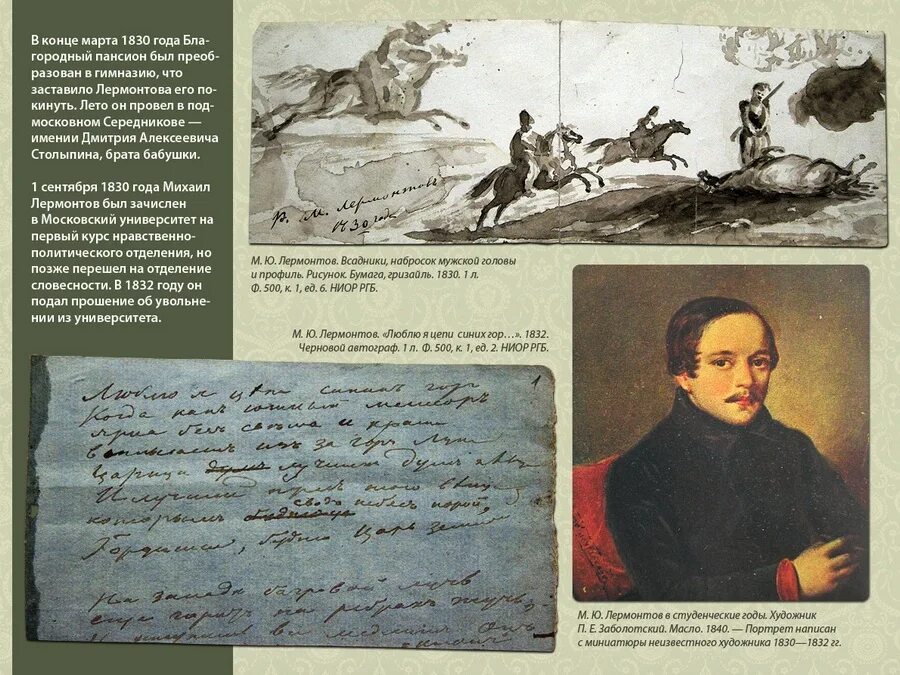 В конце марта 1830 года Бла-
городный пансион был преоб-
разован в гимназию, что
заставило Лермонтова его по-
кинуть. Лето он провел в под-
московном Середникове —
имении Дмитрия Алексеевича
Столыпина, брата бабушки.
1 сентября 1830 года Михаил
Лермонтов был зачислен
в Московский университет на
первый курс нравственно-
политического отделения, но
позже перешел на отделение
словесности. В 1832 году он
подал прошение об увольне-
нии из университета.
М. Лермонтовъ
М. Ю. Лермонтов. Всадники, набросок мужской головы
и профиль. Рисунок. Бумага, гризайль. 1830. 1 л.
Ф. 500, к. 1, ед. 6. НИОР РГБ.
М. Ю. Лермонтов. «Люблю я цепи синих гор…». 1832.
Черновой автограф. 1 л. Ф. 500, к. 1, ед. 2. НИОР РГБ.
1
Люблю я цепи синихъ горъ
Когда какъ южный метеоръ
Ярка безъ свѣта и красна
Всплываетъ изъ за горъ луна
Царица лучшихъ думъ пѣвца
И лучшій перлъ того вѣнца
которымъ сводъ небесъ порой
Гордится, будто царь земной
На западѣ багровой лучъ
еще горитъ на ребрахъ тучъ
М. Ю. Лермонтов в студенческие годы. Художник
П. Е. Заболотский. Масло. 1840. — Портрет написан
с миниатюры неизвестного художника 1830—1832 гг.